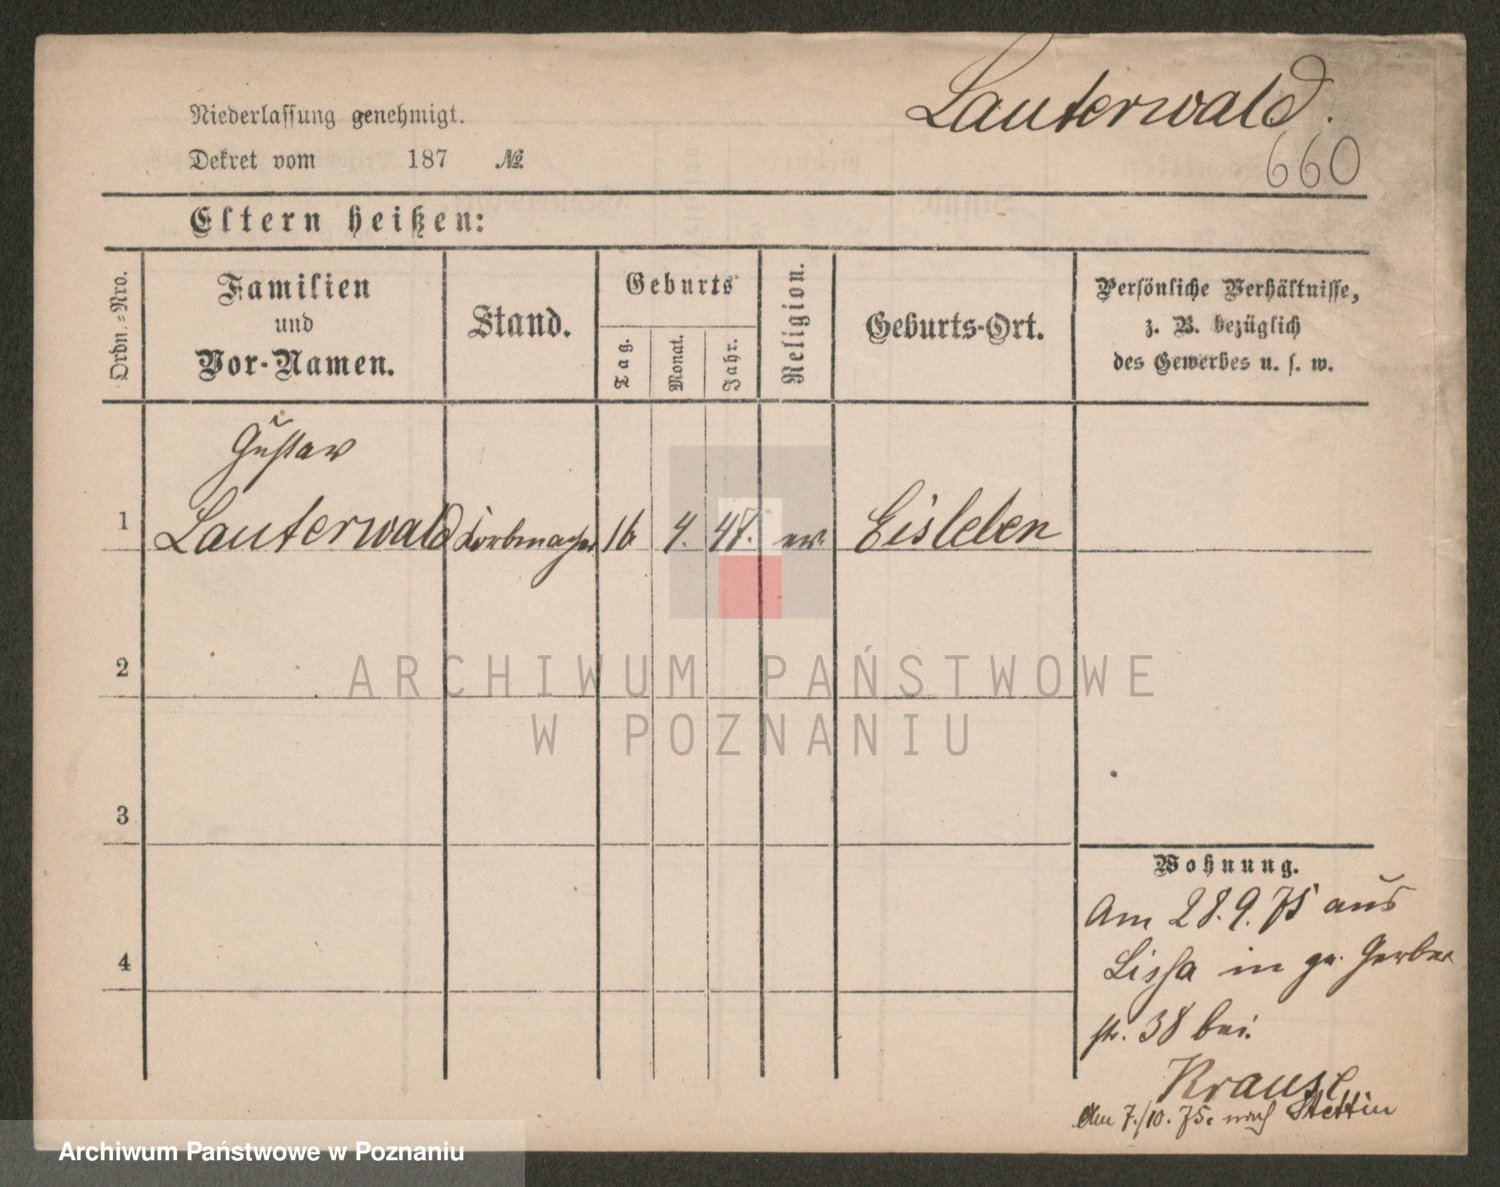 Lauterwald.
660
Niederlassung genehmigt.
Dekret vom 187 №
Eltern heißen:
Ordn.-Nro.
Familien
und
Vor-Namen.
Stand.
Geburts
Tag.
Monat.
Jahr.
Religion.
Geburts-Ort.
Persönliche Verhältnisse,
z. B. bezüglich
des Gewerbes u. s. w.
Gustav
1 Lauterwald Korbmacher 16 4. 47. ev. Eisleben
2
3
4
Wohnung.
Am 28.9.75 aus
Lissa in gr. Gerber
str. 38 bei
Krause
Am 7./10.75. nach Stettin
ARCHIWUM PAŃSTWOWE
W POZNANIU
Archiwum Państwowe w Poznaniu